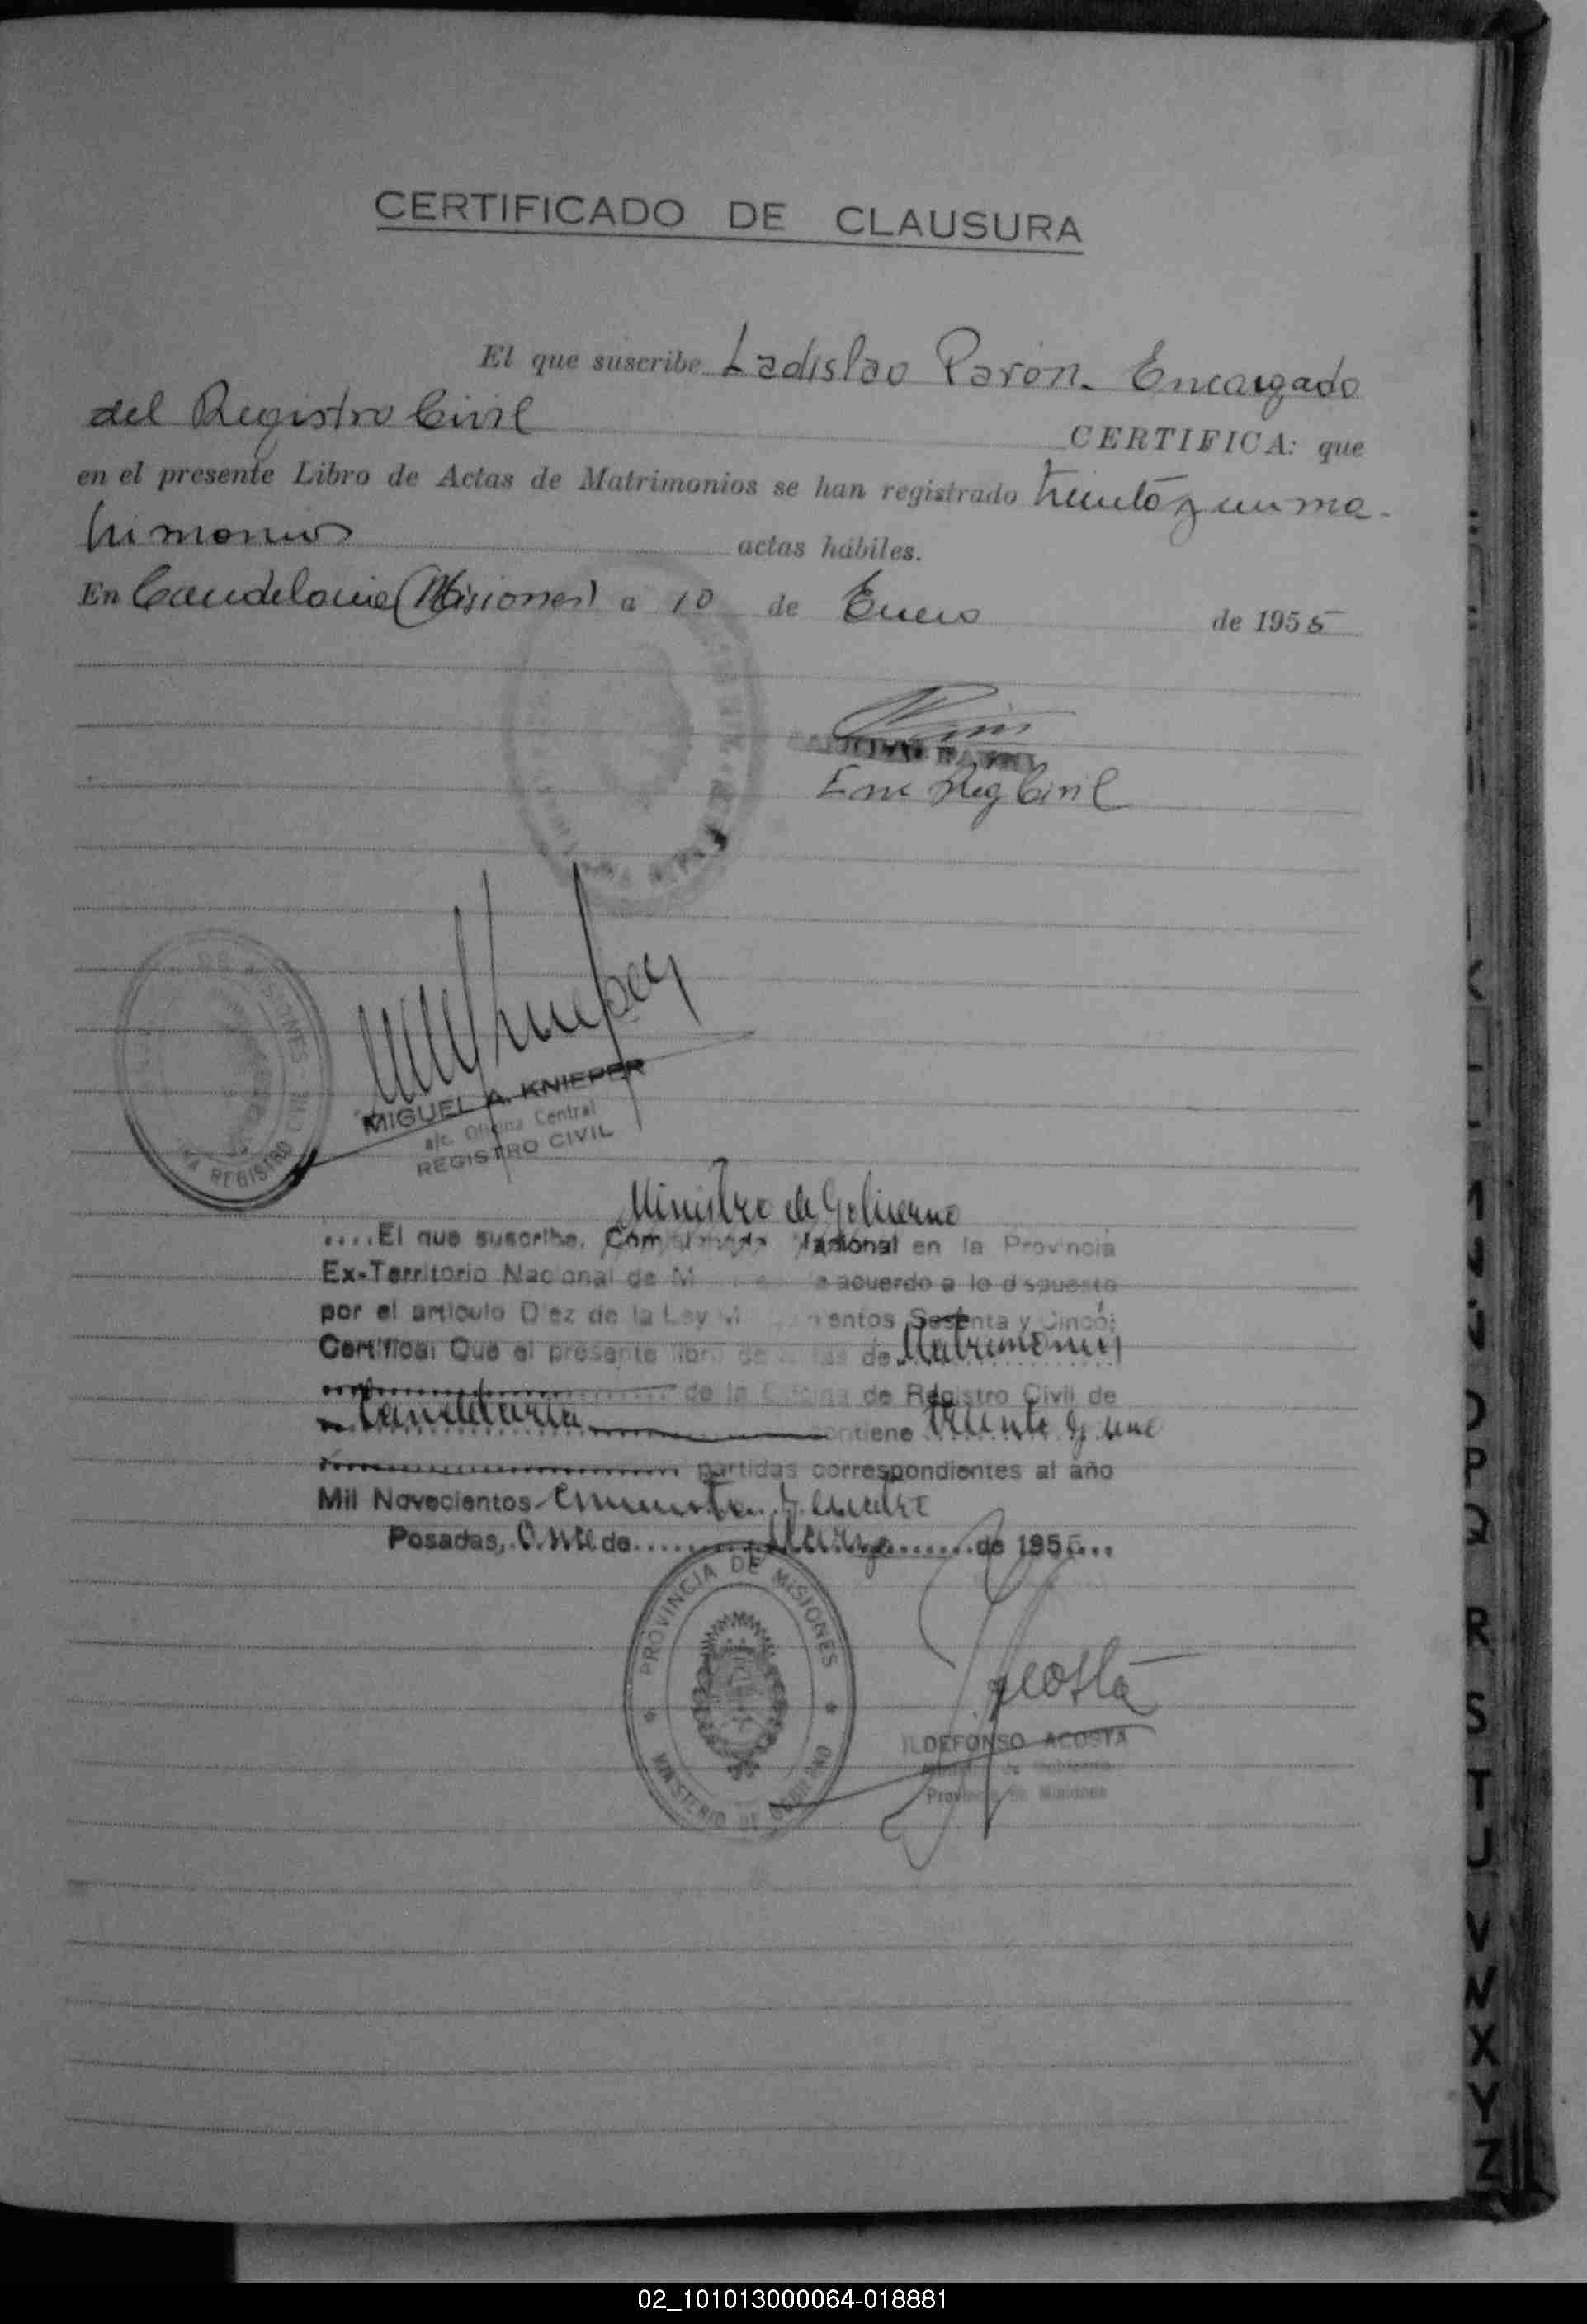 CERTIFICADO DE CLAUSURA
El que suscribe Ladislao Paron. Encargado
del Registro Civil CERTIFICA: que
en el presente Libro de Actas de Matrimonios se han registrado treinta y un ma-
trimonios actas hábiles.
En Candelaria (Misiones) a 10 de Enero de 1955
Enc Reg Civil
DE MISIONES
REGISTRO
MIGUEL A. KNIEPER
a/c. Oficina Central
REGISTRO CIVIL
Ministro de Gobierno
....El que suscribe, Nacional en la Provincia
Ex-Territorio Nacional de acuerdo a lo dispuesto
por el artículo Diez de la Ley Sesenta y Cinco;
Certifica: Que el presente libro de de Matrimonios
de la Oficina de Registro Civil de
Candelaria contiene treinta y uno
partidas correspondientes al año
Mil Novecientos cincuenta y cuatro
Posadas, Once de Marzo de 1955...
PROVINCIA DE MISIONES
MINISTERIO DE GOBIERNO
Acosta
ILDEFONSO ACOSTA
Ministro de Gobierno
Provincia de Misiones
K
L
M
N
Ñ
O
P
Q
R
S
T
U
V
W
X
Y
Z
02_101013000064-018881